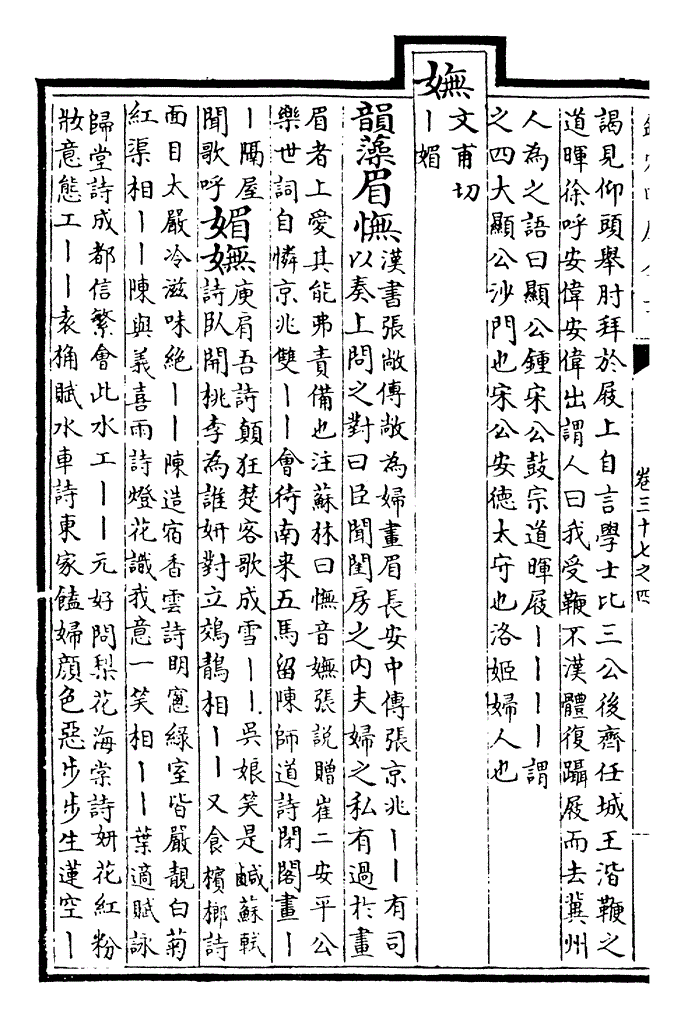 卷三十七之四
謁見仰頭舉肘拜於屐上自言學士比三公後齊任城王湝鞭之
道暉徐呼安偉安偉出謂人曰我受鞭不漢體復躡屐而去冀州
人為之語曰顯公鍾宋公鼓宗道暉屐丨丨丨丨丨謂
之四大顯公沙門也宋公安德太守也洛姬婦人也
嫵
文甫切
丨媚
韻藻眉憮
漢書張敞傳敞為婦畫眉長安中傳張京兆丨丨有司
以奏上問之對曰臣聞閨房之內夫婦之私有過於畫
眉者上愛其能弗責備也注蘇林曰憮音嫵張説贈崔二安平公
樂世詞自憐京兆雙丨丨會待南來五馬留陳師道詩閉閣畫丨
丨隔屋
聞歌呼
媚嫵
庾肩吾詩顛狂楚客歌成雪丨丨吳娘笑是鹹蘇軾
詩臥開桃李為誰妍對立鵁鶄相丨丨又食檳榔詩
面目太嚴冷滋味絶丨丨陳造宿香雲詩明窻綠室皆嚴靚白菊
紅渠相丨丨陳與義喜雨詩燈花識我意一笑相丨丨葉適賦詠
歸堂詩成都信繁會此水工丨丨元好問梨花海棠詩妍花紅粉
妝意態工丨丨袁桷賦水車詩東家饁婦顔色惡步步生蓮空丨